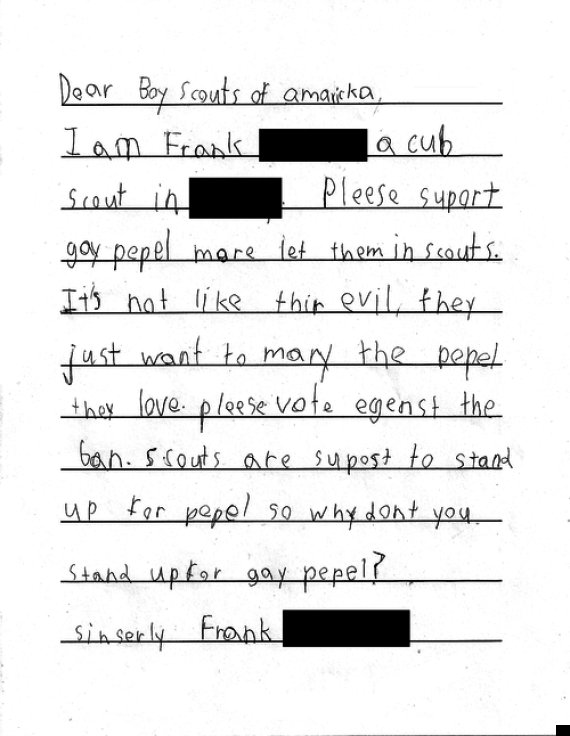 Dear Boy scouts of amaricka,
I am Frank a cub
scout in . Pleese suport
gay pepel more let them in scouts.
It's not like thir evil, they
just want to mary the pepel
they love. pleese vote egenst the
ban. scouts are supost to stand
up for pepel so why dont you
stand up for gay pepel?
sinserly Frank